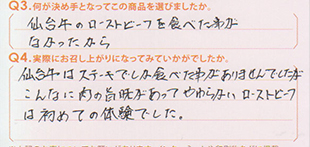 Q3.何が決め手となってこの商品を選びましたか。
仙台牛のローストビーフを食べたわが
なかったから
Q4.実際にお召し上がりになってみていかがでしたか。
仙台牛はステーキでしか食べたわがありませんでしたが
こんなに肉の旨味があってやわらいローストビーフ
は初めての体験でした。